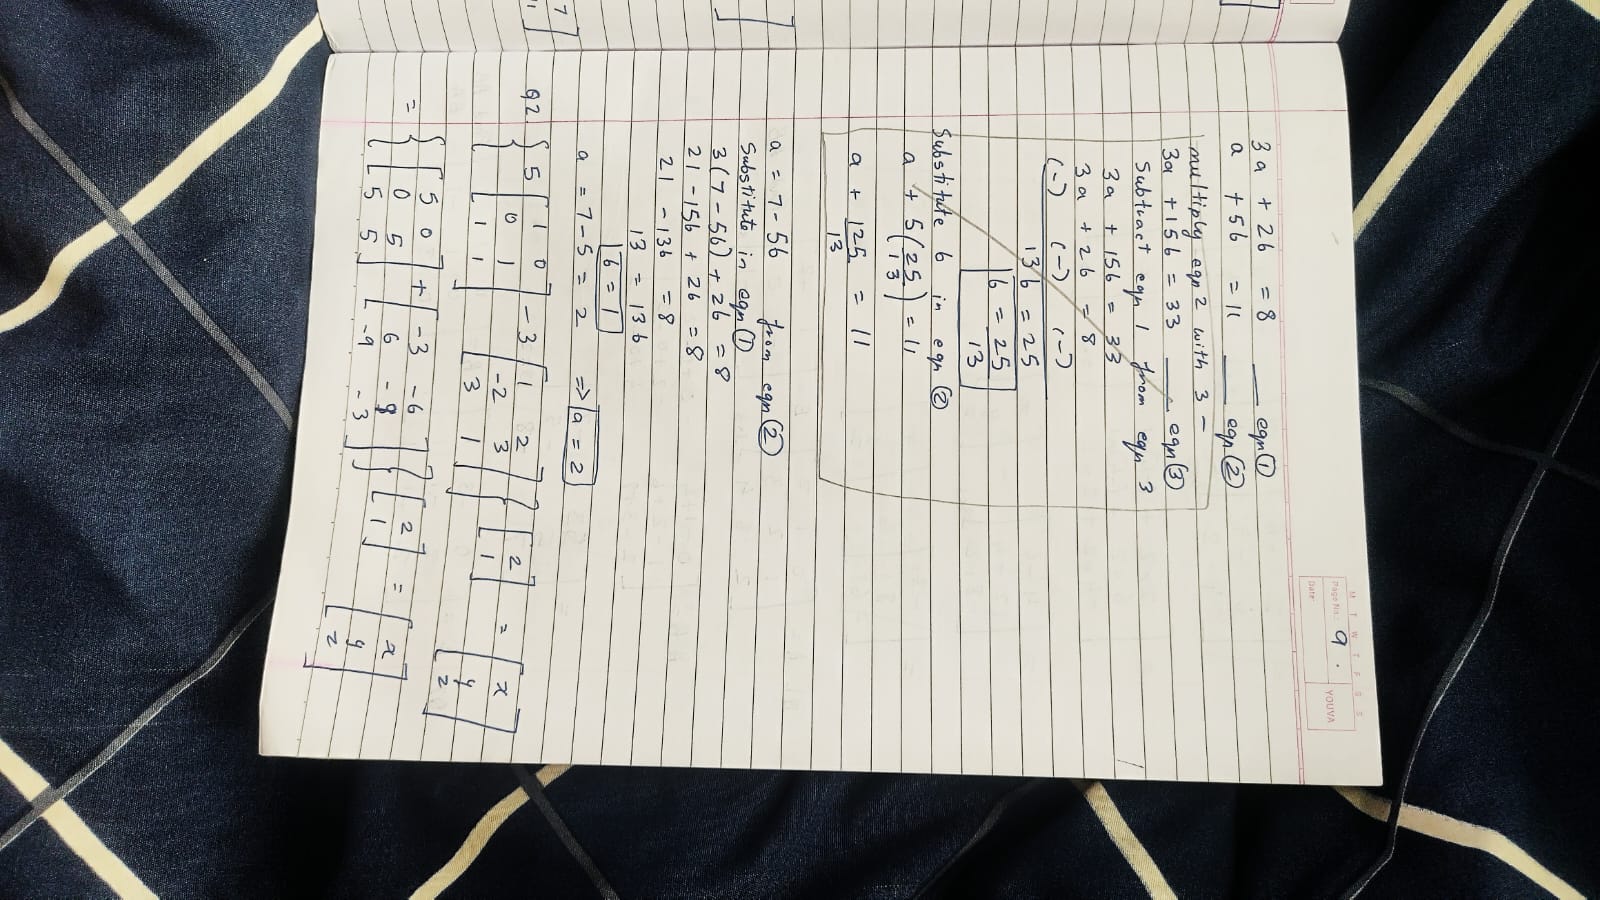 M T W T F S S
Page No.: 9.
YOUVA
Date:
3a + 2b = 8 — eqn ①
a + 5b = 11 — eqn ②
multiply eqn 2 with 3 -
3a + 15b = 33 — eqn ③
Subtract eqn 1 from eqn 3
3a + 15b = 33
3a + 2b = 8
(-) (-) (-)
13b = 25
b = 25
13
Substitute b in eqn ②
a + 5(25/13) = 11
a + 125/13 = 11
a = 7 - 5b from eqn ②
Substitute in eqn ①
3(7 - 5b) + 2b = 8
21 - 15b + 2b = 8
21 - 13b = 8
13 = 13b
b = 1
a = 7 - 5 = 2 => a = 2
Q2. { 5 [ 1 0 ] - 3 [ 1 2 ] } [ 2 ] = [ x ]
0 1 -2 3 1 y
1 1 3 1 z
= { [ 5 0 ] + [ -3 -6 ] } [ 2 ] = [ x ]
0 5 6 -9 1 y
5 5 -9 -3 z
7